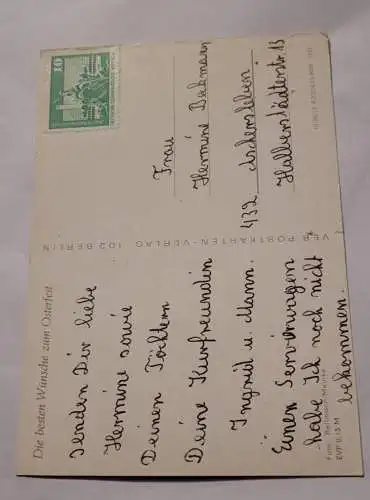 Die besten Wünsche zum Osterfest
senden Dir liebe
Hermine sowie
Deinen Töchtern
Deine Kurfreundin
Ingrid u. Mann.
Einen Servierwagen
habe Ich noch nicht
bekommen.
EVP 0,15 M
VEB POSTKARTEN-VERLAG 102 BERLIN
10
Frau
Hermine Bahmann
432 Aschersleben
Halberstädterstr. 13